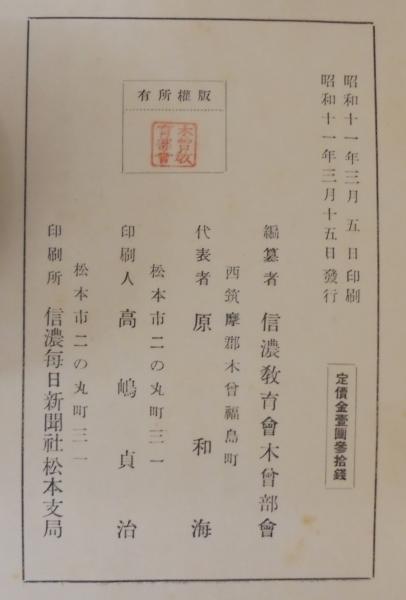 昭和十一年三月五日印刷
昭和十一年三月十五日發行
定價金壹圓參拾錢
版權所有
木曾敎育部會
編纂者 信濃敎育會木曾部會
西筑摩郡木曾福島町
代表者 原和海
松本市二の丸町三一
印刷人 高嶋貞治
松本市二の丸町三一
印刷所 信濃每日新聞社松本支局